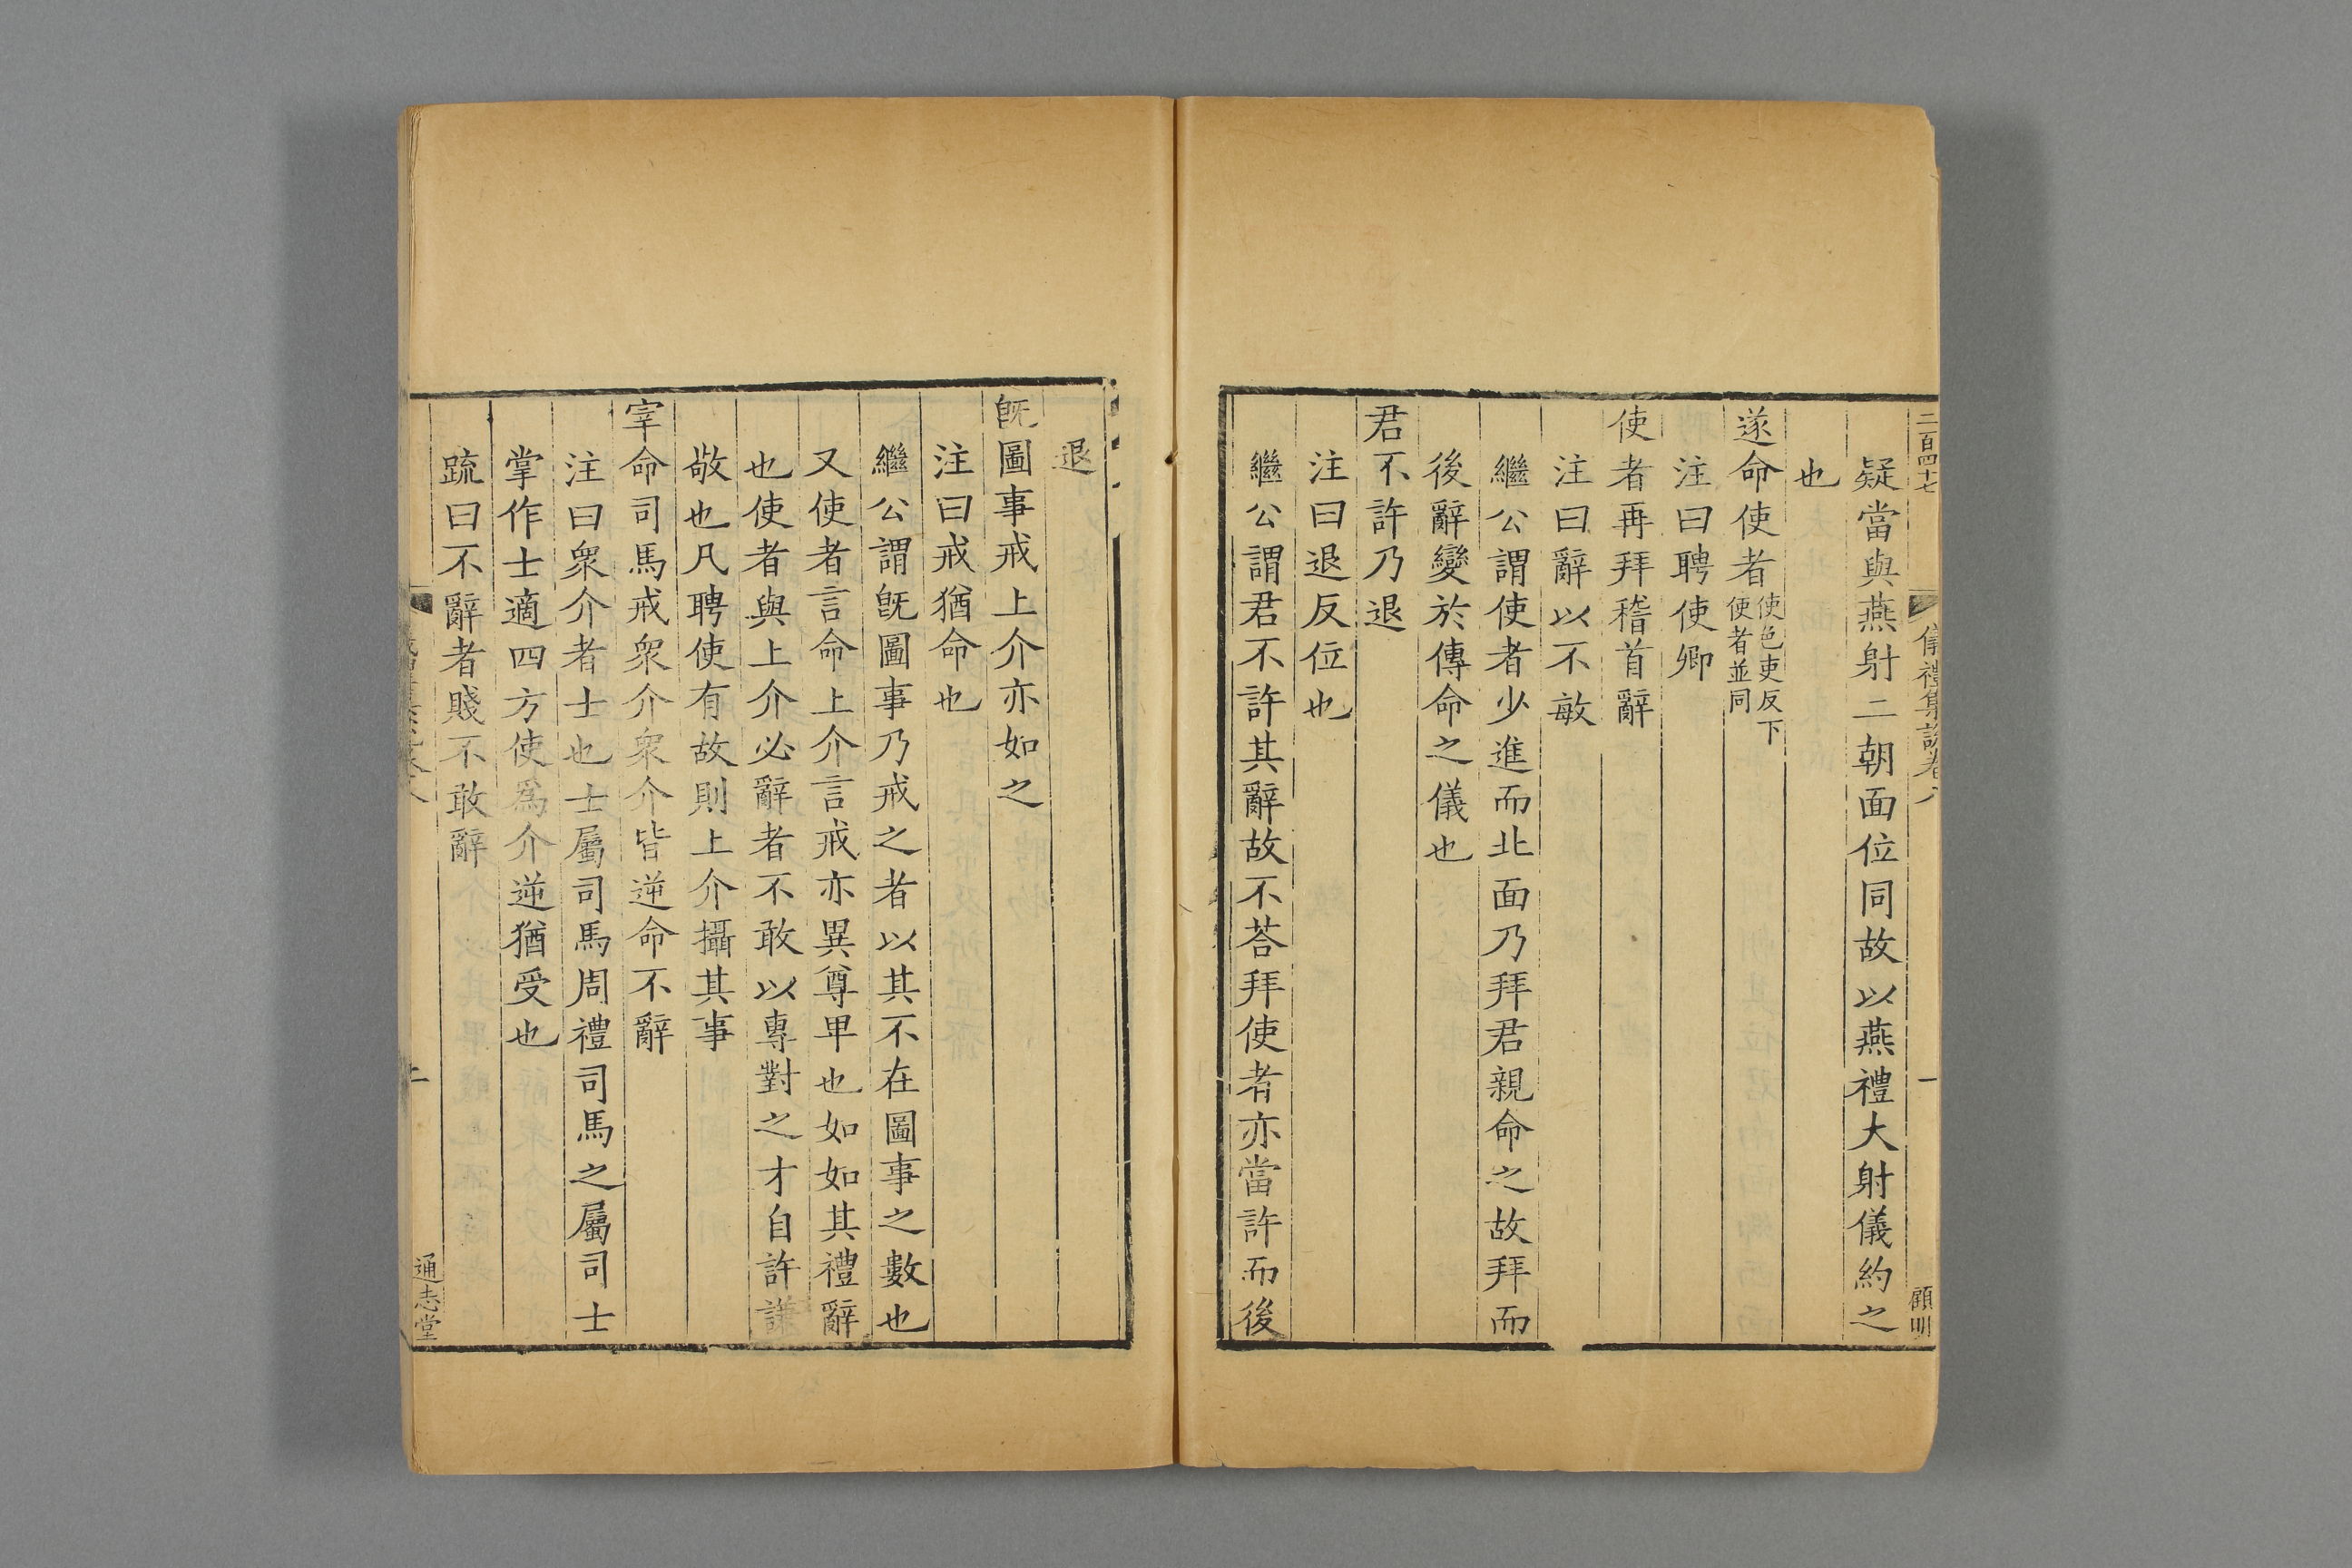 二百四十七
儀禮集說卷八
一
顧明
疑當與燕射二朝面位同故以燕禮大射儀約之
也
遂命使者使色吏反下使者並同
注曰聘使卿
使者再拜稽首辭
注曰辭以不敏
繼公謂使者少進而北面乃拜君親命之故拜而
後辭變於傳命之儀也
君不許乃退
注曰退反位也
繼公謂君不許其辭故不荅拜使者亦當許而後
退
旣圖事戒上介亦如之
注曰戒猶命也
繼公謂旣圖事乃戒之者以其不在圖事之數也
又使者言命上介言戒亦異尊卑也如如其禮辭
也使者與上介必辭者不敢以專對之才自許謙
敬也凡聘使有故則上介攝其事
宰命司馬戒衆介衆介皆逆命不辭
注曰衆介者士也士屬司馬周禮司馬之屬司士
掌作士適四方使爲介逆猶受也
疏曰不辭者賤不敢辭
通志堂